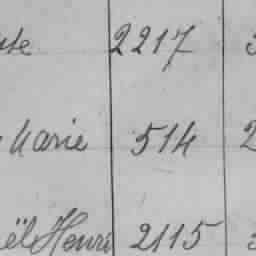 2217
Marie 514 2
Henri 2115